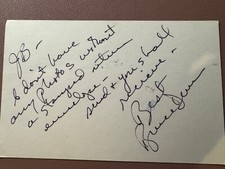 JB –
I don't have
any photos without
a stamped return
envelope –
send & you shall
receive –
Best
Bruce Dern